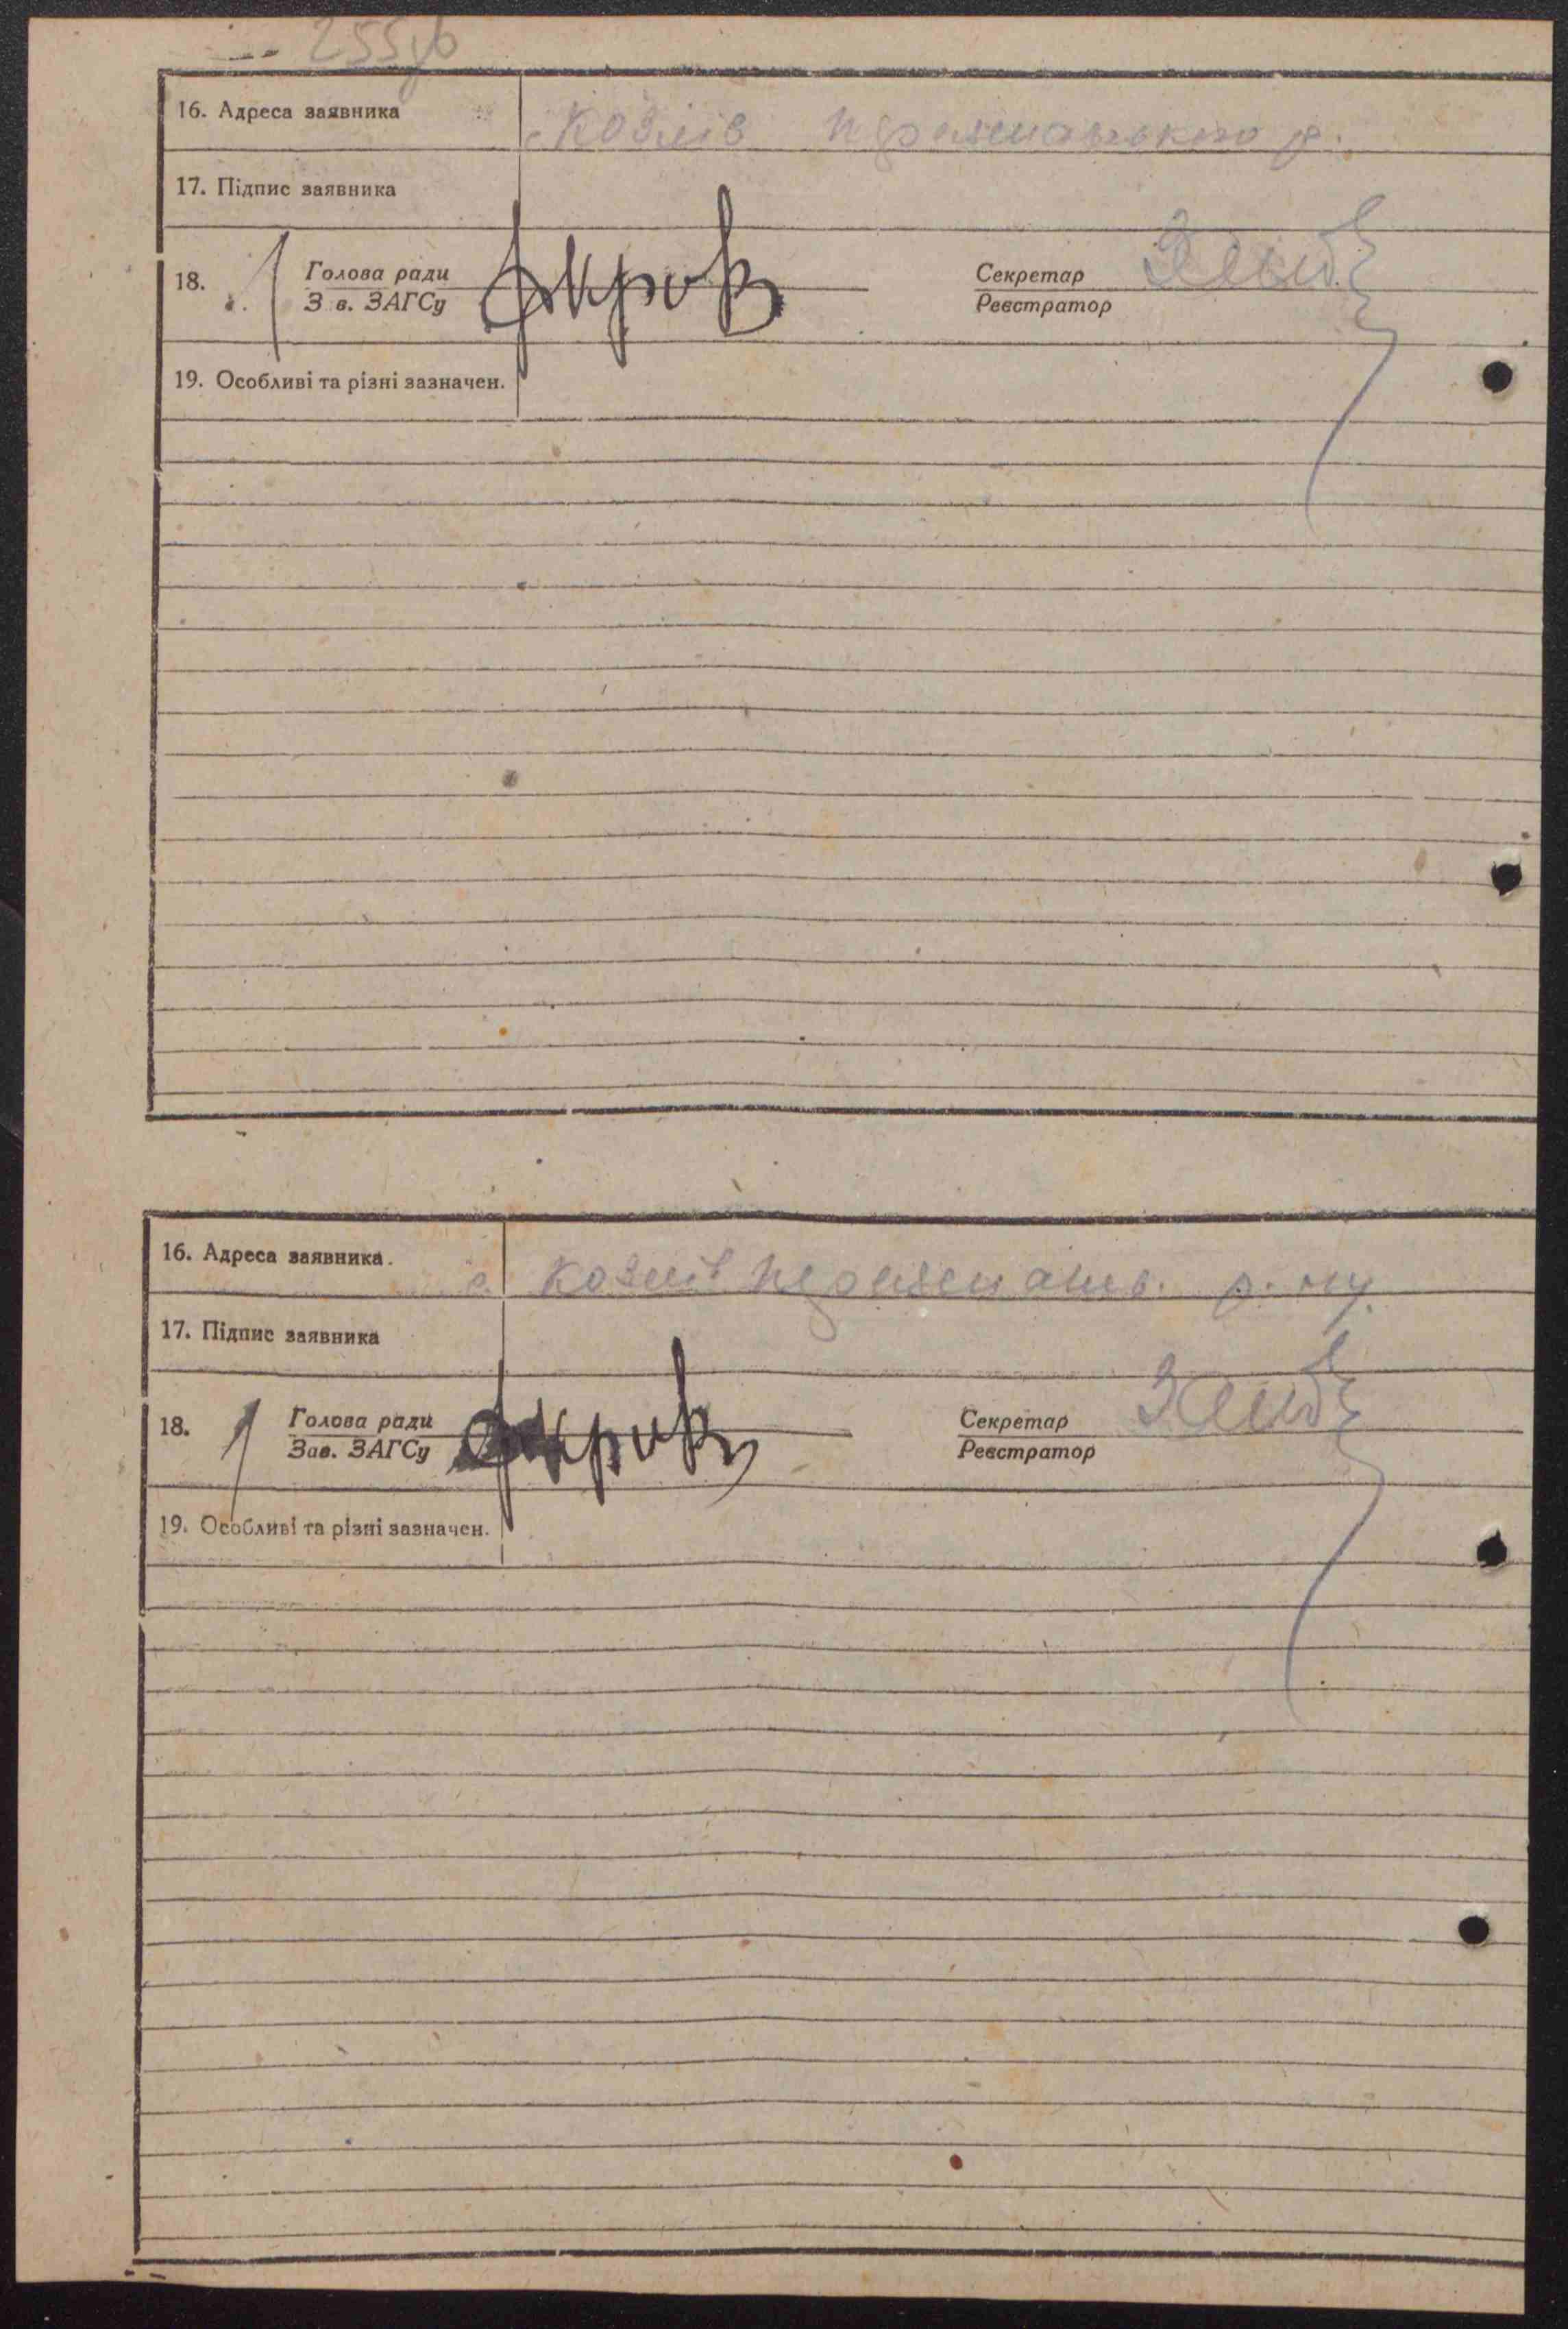 255зв
16. Адреса заявника с. Козлів
17. Підпис заявника
18. Голова ради Секретар
З в. ЗАГСу Реєстратор
19. Особливі та різні зазначен.
16. Адреса заявника. с. Козлів р. ну
17. Підпис заявника
18. Голова ради Секретар
Зав. ЗАГСу Реєстратор
19. Особливі та різні зазначен.